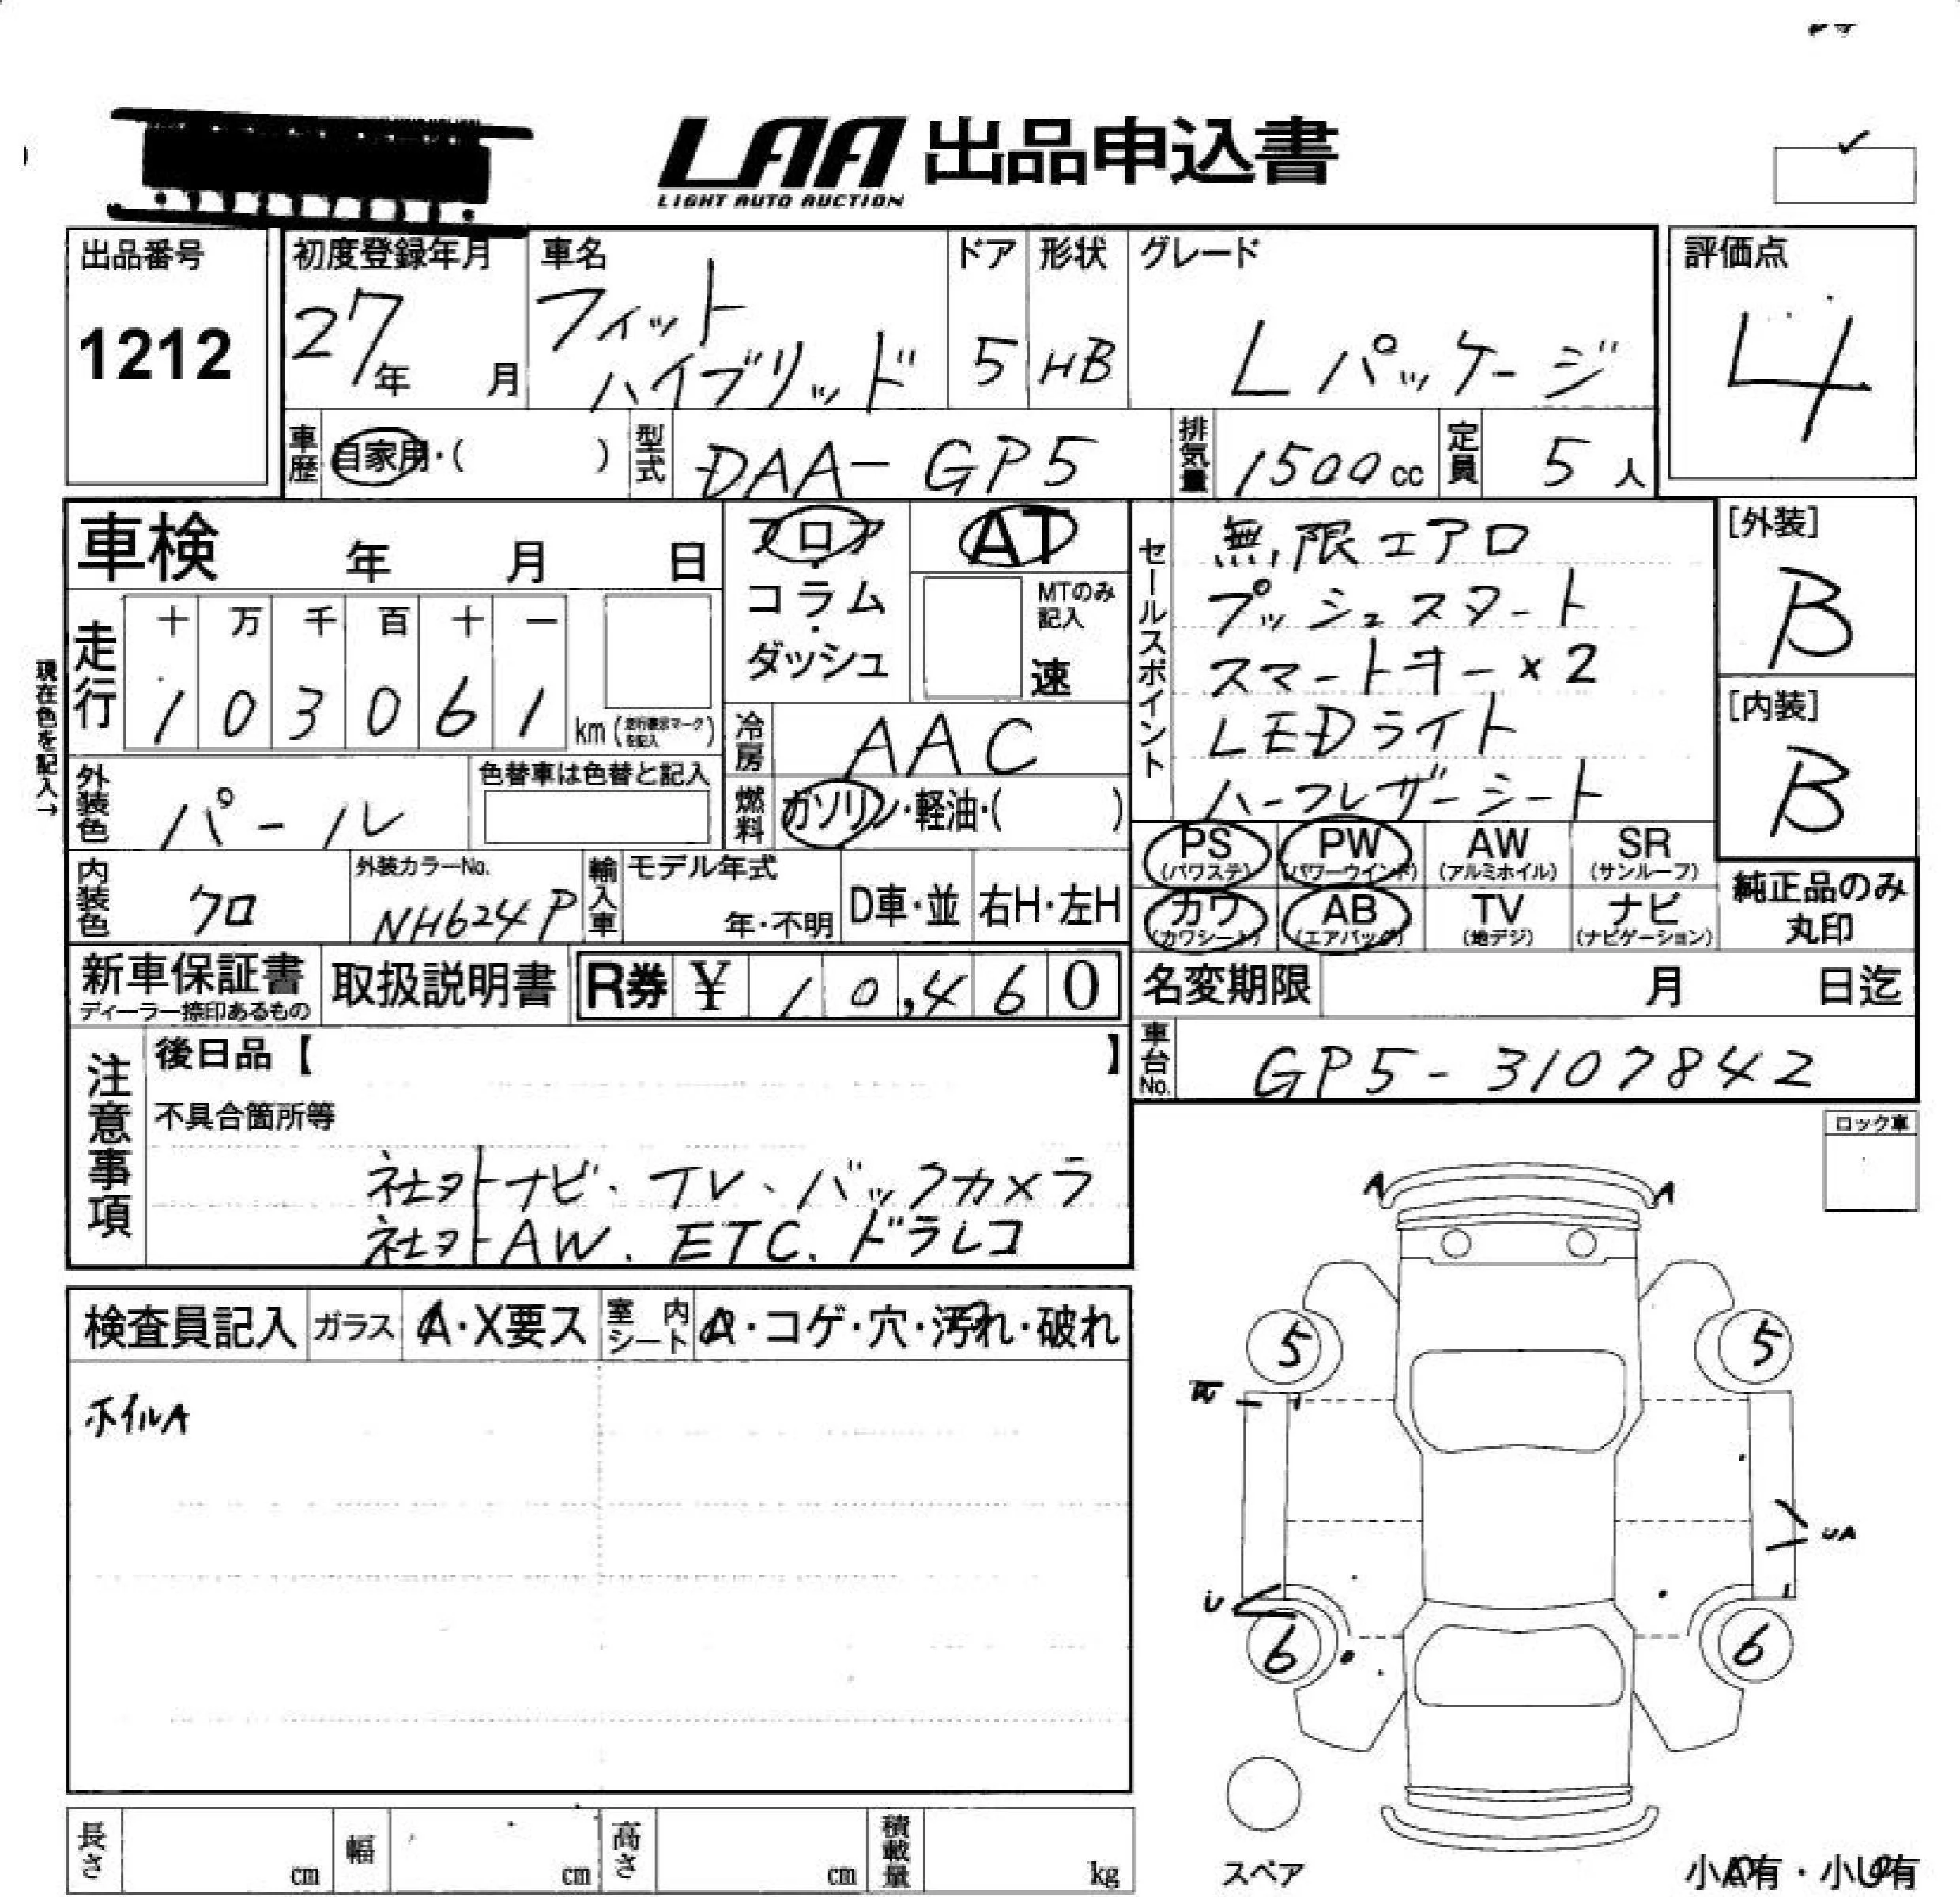 LAA 出品申込書
LIGHT AUTO AUCTION
出品番号
1212
初度登録年月
27年 月
車名
フィット
ハイブリッド
ドア
5
形状
HB
グレード
Lパッケージ
評価点
4
車歴 自家用・( )
型式 DAA-GP5
排気量 1500cc
定員 5人
車検 年 月 日
フロア
・
コラム
・
ダッシュ
AT
MTのみ
記入
速
セールスポイント
無限エアロ
プッシュスタート
スマートキー×2
LEDライト
ハーフレザーシート
[外装]
B
[内装]
B
現在色を記入→
走行
十 万 千 百 十 一
1 0 3 0 6 1 km (走行表示マークを記入)
冷房 AAC
燃料 ガソリン・軽油・( )
外装色 パール
色替車は色替と記入
内装色 クロ
外装カラーNo.
NH624P
輸入車
モデル年式
年・不明
D車・並
右H・左H
PS
(パワステ)
PW
(パワーウインド)
AW
(アルミホイル)
SR
(サンルーフ)
カワ
(カワシート)
AB
(エアバッグ)
TV
(地デジ)
ナビ
(ナビゲーション)
純正品のみ
丸印
新車保証書
ディーラー捺印あるもの
取扱説明書
R券 ¥ 10,460
名変期限 月 日迄
車台No. GP5-3107842
注意事項
後日品【 】
不具合箇所等
社外ナビ・TV・バックカメラ
社外AW. ETC. ドラレコ
ロック車
検査員記入
ガラス A・X要ス
室内シート A・コゲ・穴・汚れ・破れ
ホイルA
A A
5 5
UA
U
6 6
スペア
小A有・小U有
長さ cm
幅 cm
高さ cm
積載量 kg